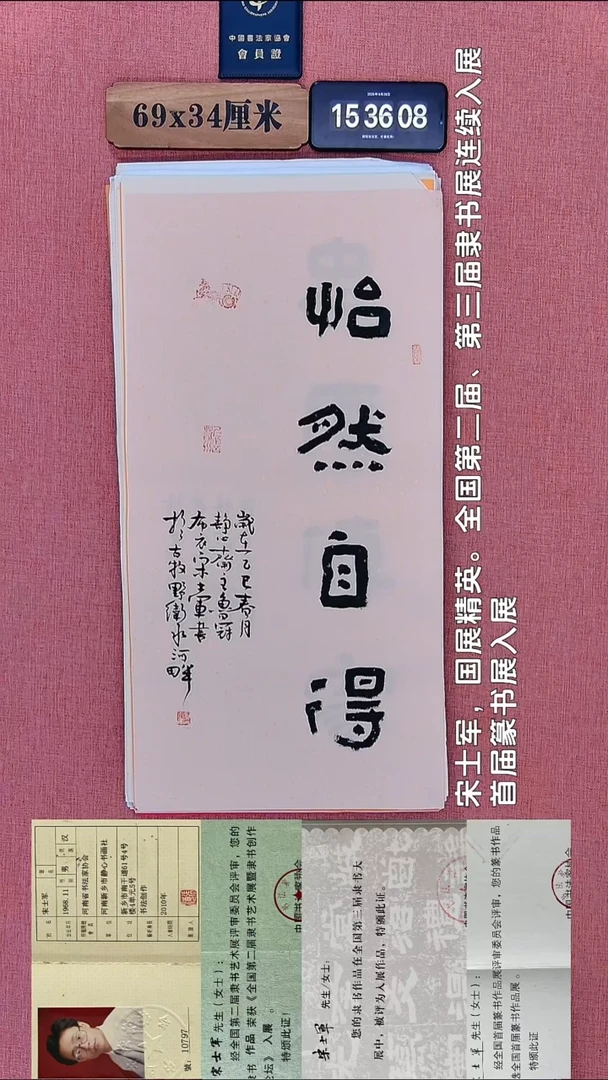 中國書法家協會
會員證
69x34厘米
15 36 08
怡
然
自
得
歲在乙巳春月
靜心齋主魯冠
布衣宋士軍書
於古牧野衛水河畔
宋士军，国展精英。全国第二届、第三届隶书展连续入展
首届篆书展入展
宋士军
1968.11
男
汉
河南省书法家协会
河南新乡市静心书画社
新乡市南干道61号4号
楼4单元5号
书法创作
2010年
號：10797
宋士军 先生（女士）：
经全国第二届隶书艺术展评审委员会评审，您的
隶书 作品 荣获《全国第二届隶书艺术展暨隶书创作
论坛》入展 。
特颁此证！
宋士军 先生/女士：
您的隶书作品在全国第三届隶书大
展中，被评为入展作品，特颁此证。
士军 先生（女士）：
经全国首届篆书作品展评审委员会评审，您的篆书作品
全国首届篆书作品展 。
特颁此证